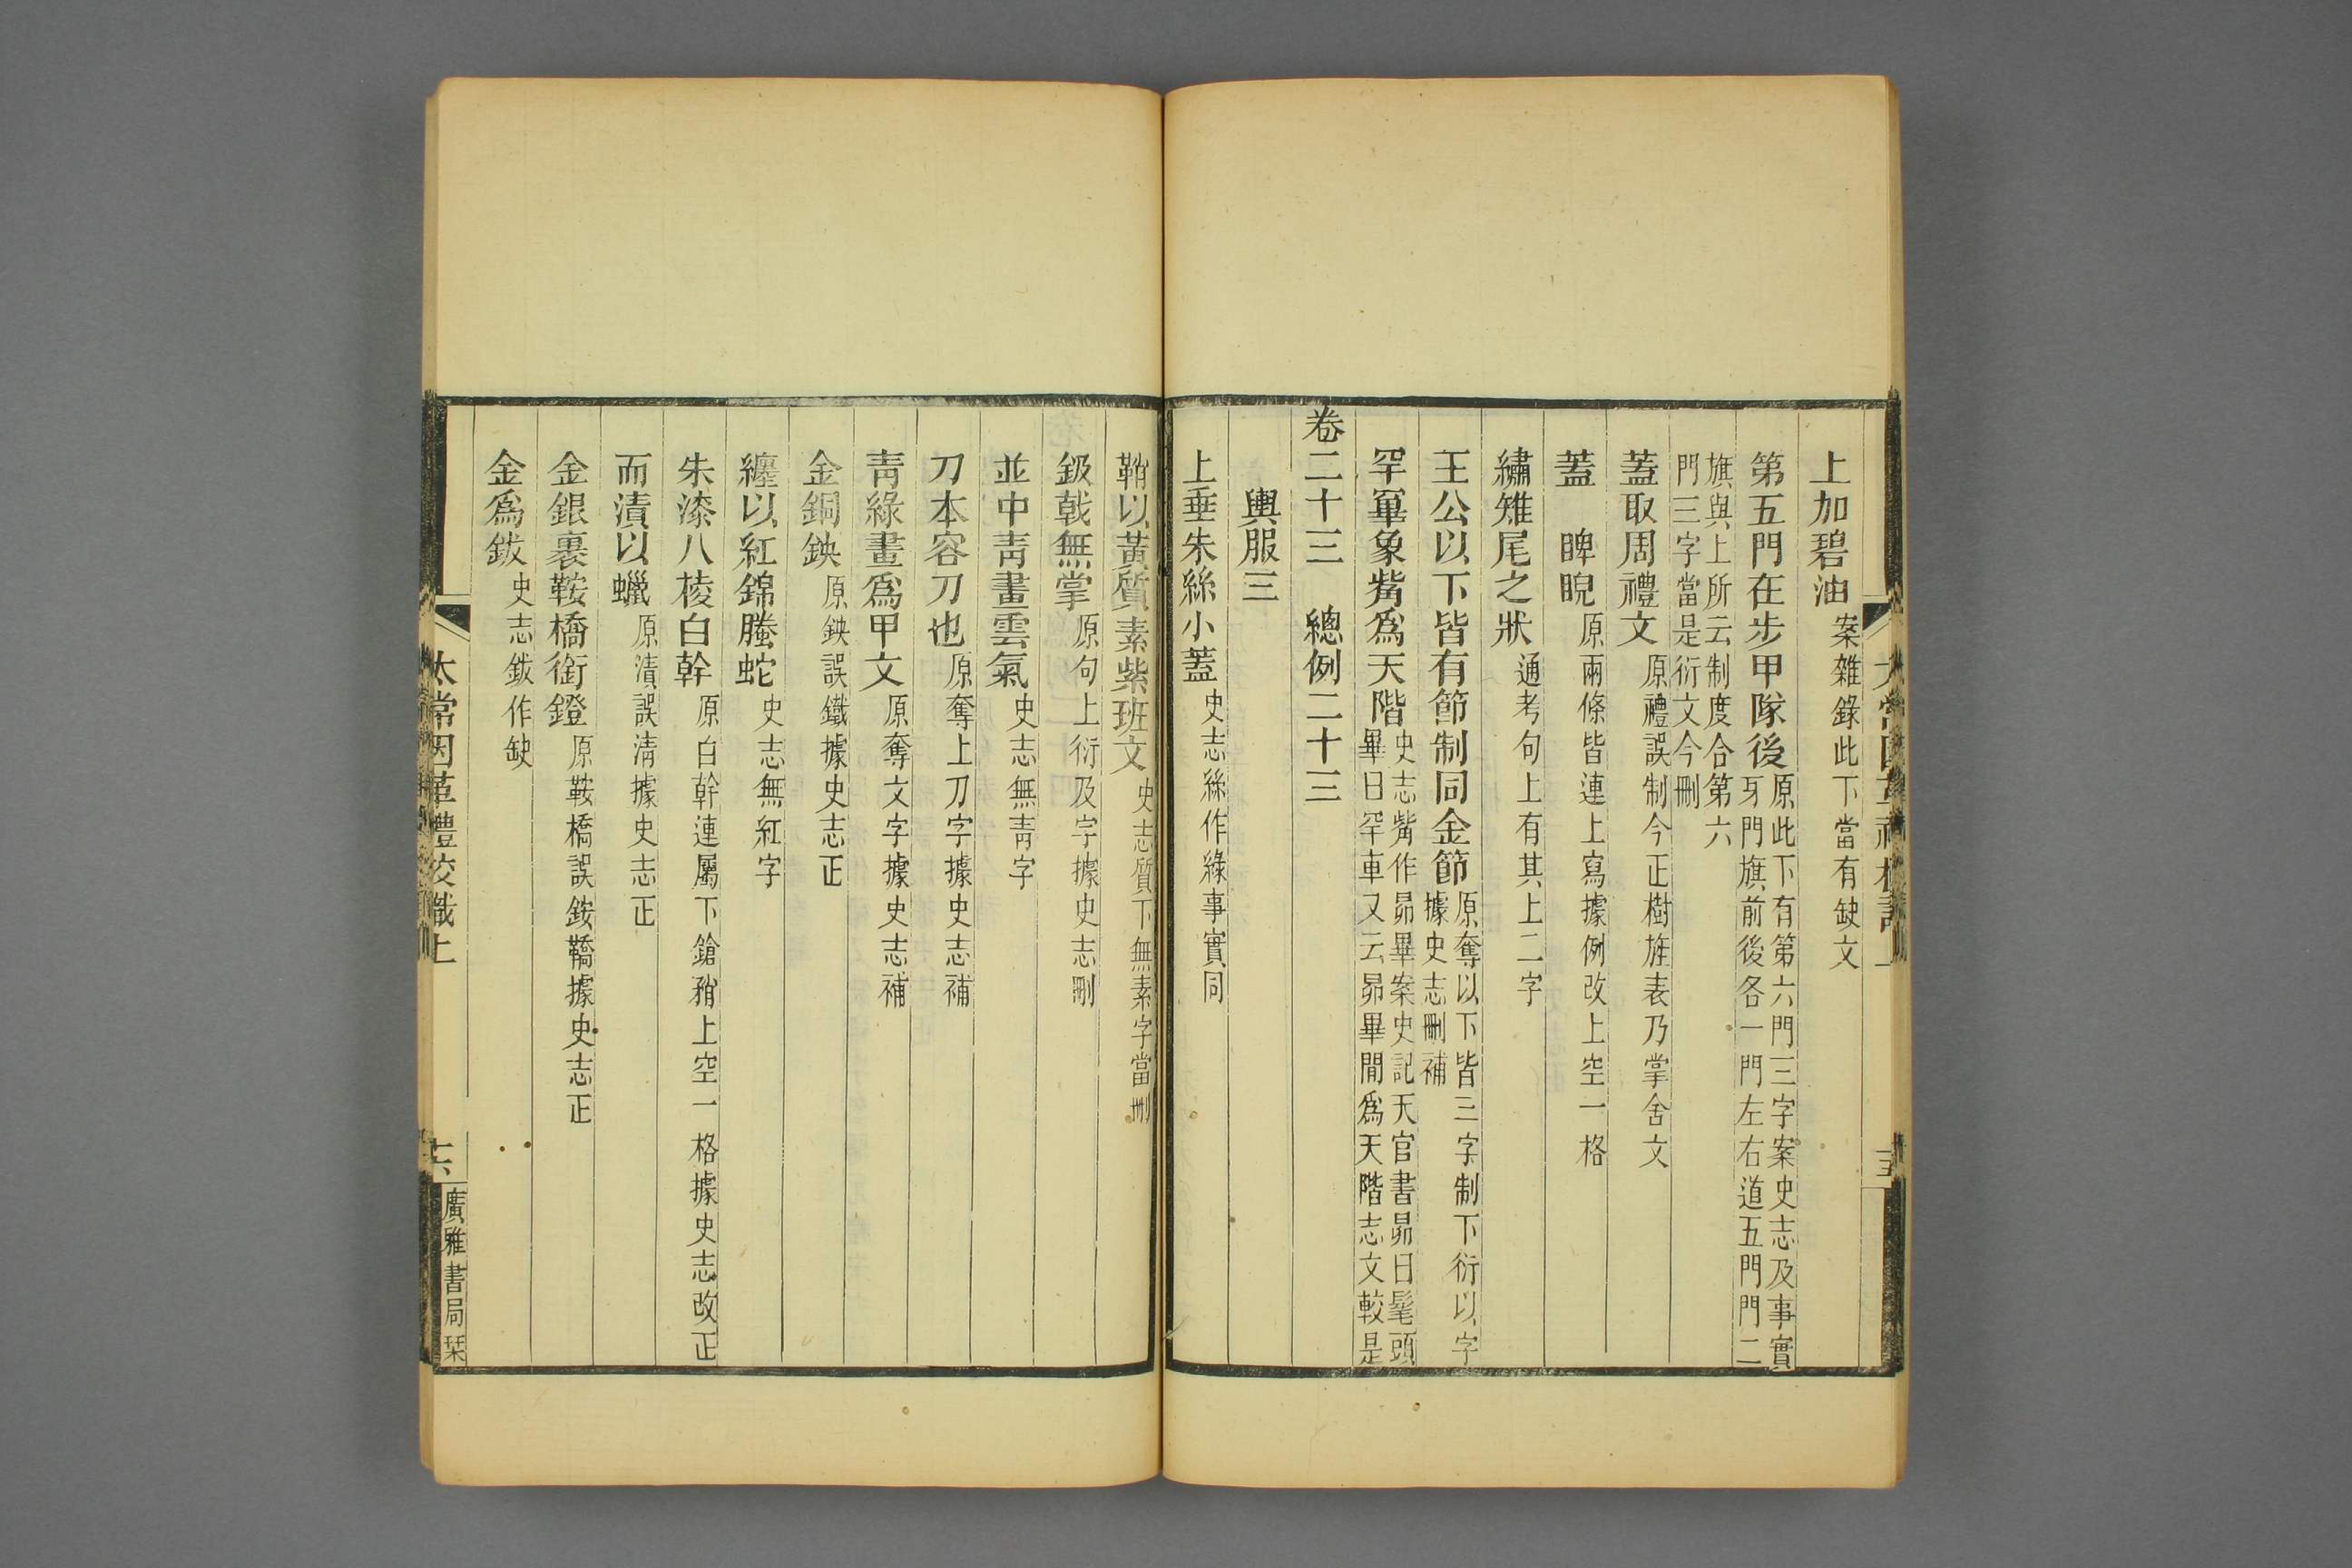 上加碧油案雜錄此下當有缺文
第五門在步甲隊後原此下有第六門三字案史志及事實
牙門旗前後各一門左右道五門門二
旗與上所云制度合第六
門三字當是衍文今刪
蓋取周禮文原禮誤制今正樹旌表乃掌舍文
蓋　睥睨原兩條皆連上寫據例改上空一格
繡雉尾之狀通考句上有其上二字
王公以下皆有節制同金節原奪以下皆三字制下衍以字
據史志刪補
罕罼象觜爲天階史志觜作昴畢案史記天官書昴曰髦頭
畢曰罕車又云昴畢間爲天階志文較是
卷二十三　總例二十三
輿服三
上垂朱絲小蓋史志絲作綠事實同
鞘以黃質素紫班文史志質下無素字當刪
鈒戟無掌原句上衍及字據史志刪
並中靑畫雲氣史志無靑字
刀本容刀也原奪上刀字據史志補
靑綠畫爲甲文原奪文字據史志補
金銅鉠原鉠誤鐵據史志正
纏以紅錦螣蛇史志無紅字
朱漆八棱白幹原白幹連屬下鎗矟上空一格據史志改正
而漬以蠟原漬誤淸據史志正
金銀裹鞍橋銜鐙原鞍橋誤銨鞽據史志正
金爲鈸史志鈸作鈌
太常因革禮校識上
六
廣雅書局栞